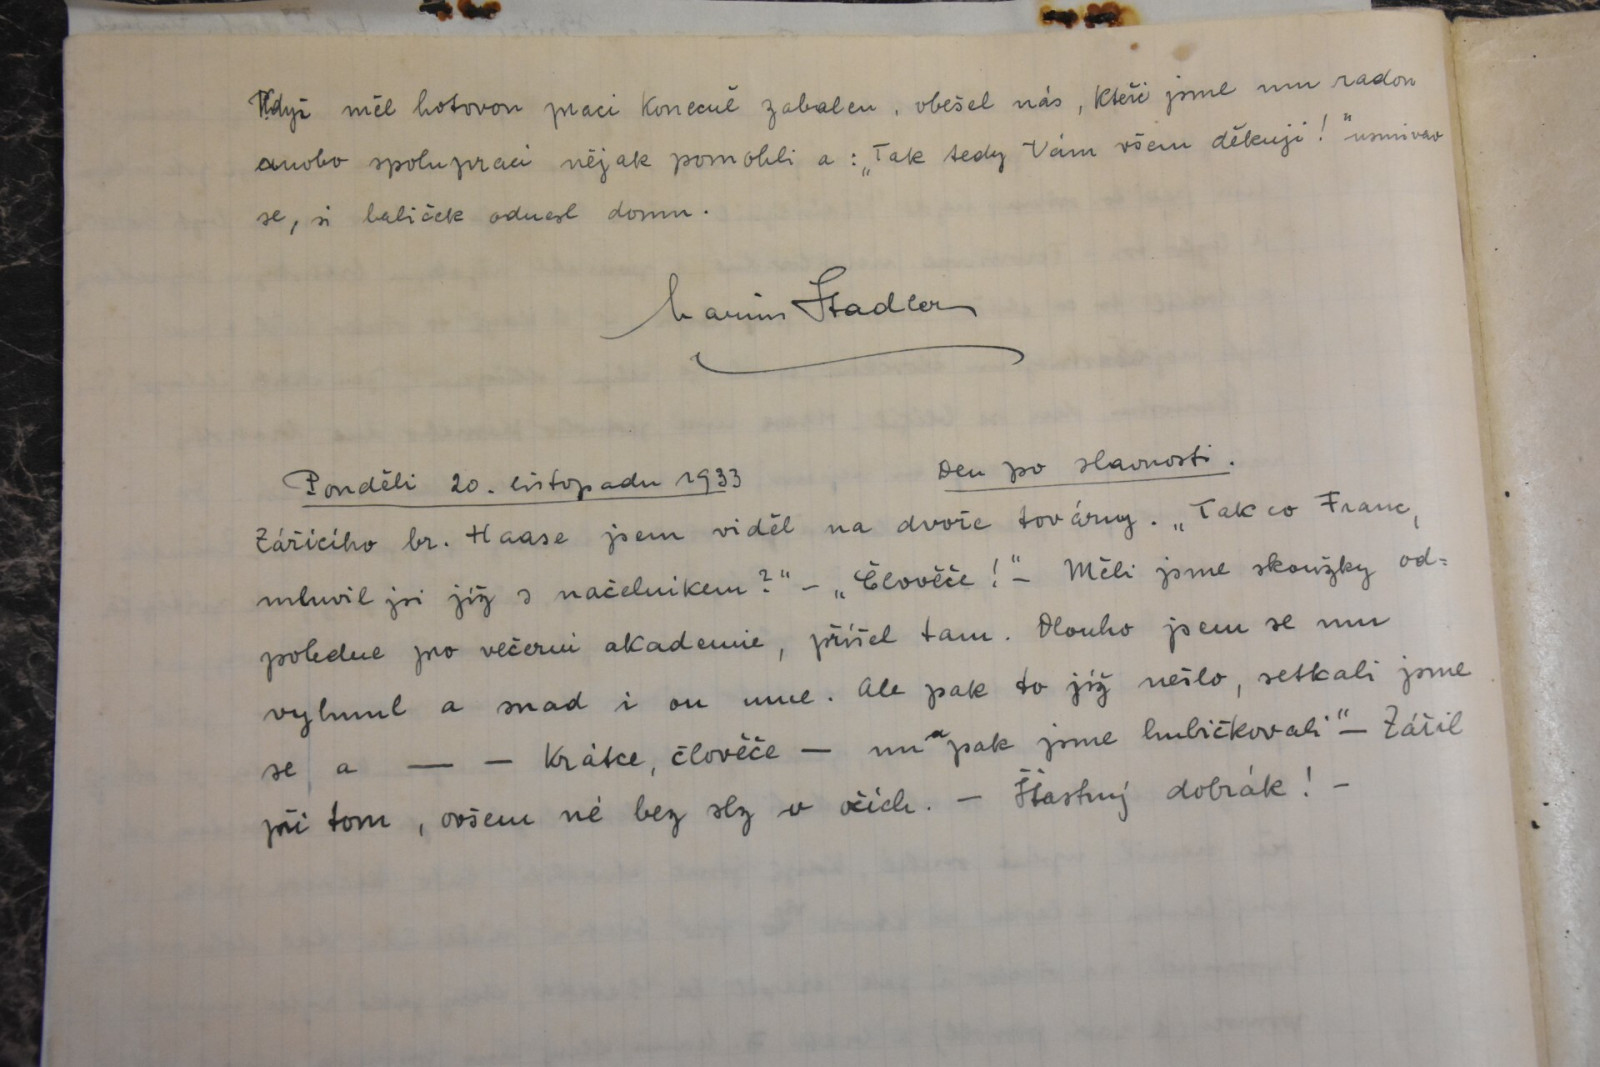 Když měl hotovou praci Konecně zabalen, obešel nás, Kteři jsme mu radou
anobo spolupraci nějak pomohli a : „Tak tedy Vám všem děkuji!" usmivav
se, si baliček odnesl domu.
Stadler
Ponděli 20. listopadu 1933 Den po slavnosti.
Zářicího br. Haase jsem viděl na dvoře továrny. „Tak co Franc,
mluvil jsi již s načelnikem?" – „Člověče!" – Měli jsme skoužky od=
poledne pro večerni akademie, přišel tam. Dlouho jsem se mu
vyhnul a snad i on mne. Ale pak to již nešlo, setkali jsme
se a — — Krátce, člověče — nu a pak jsme hubičkovali" – Zářil
při tom, ovšem né bez slz v očích. – Štastný dobrák! –